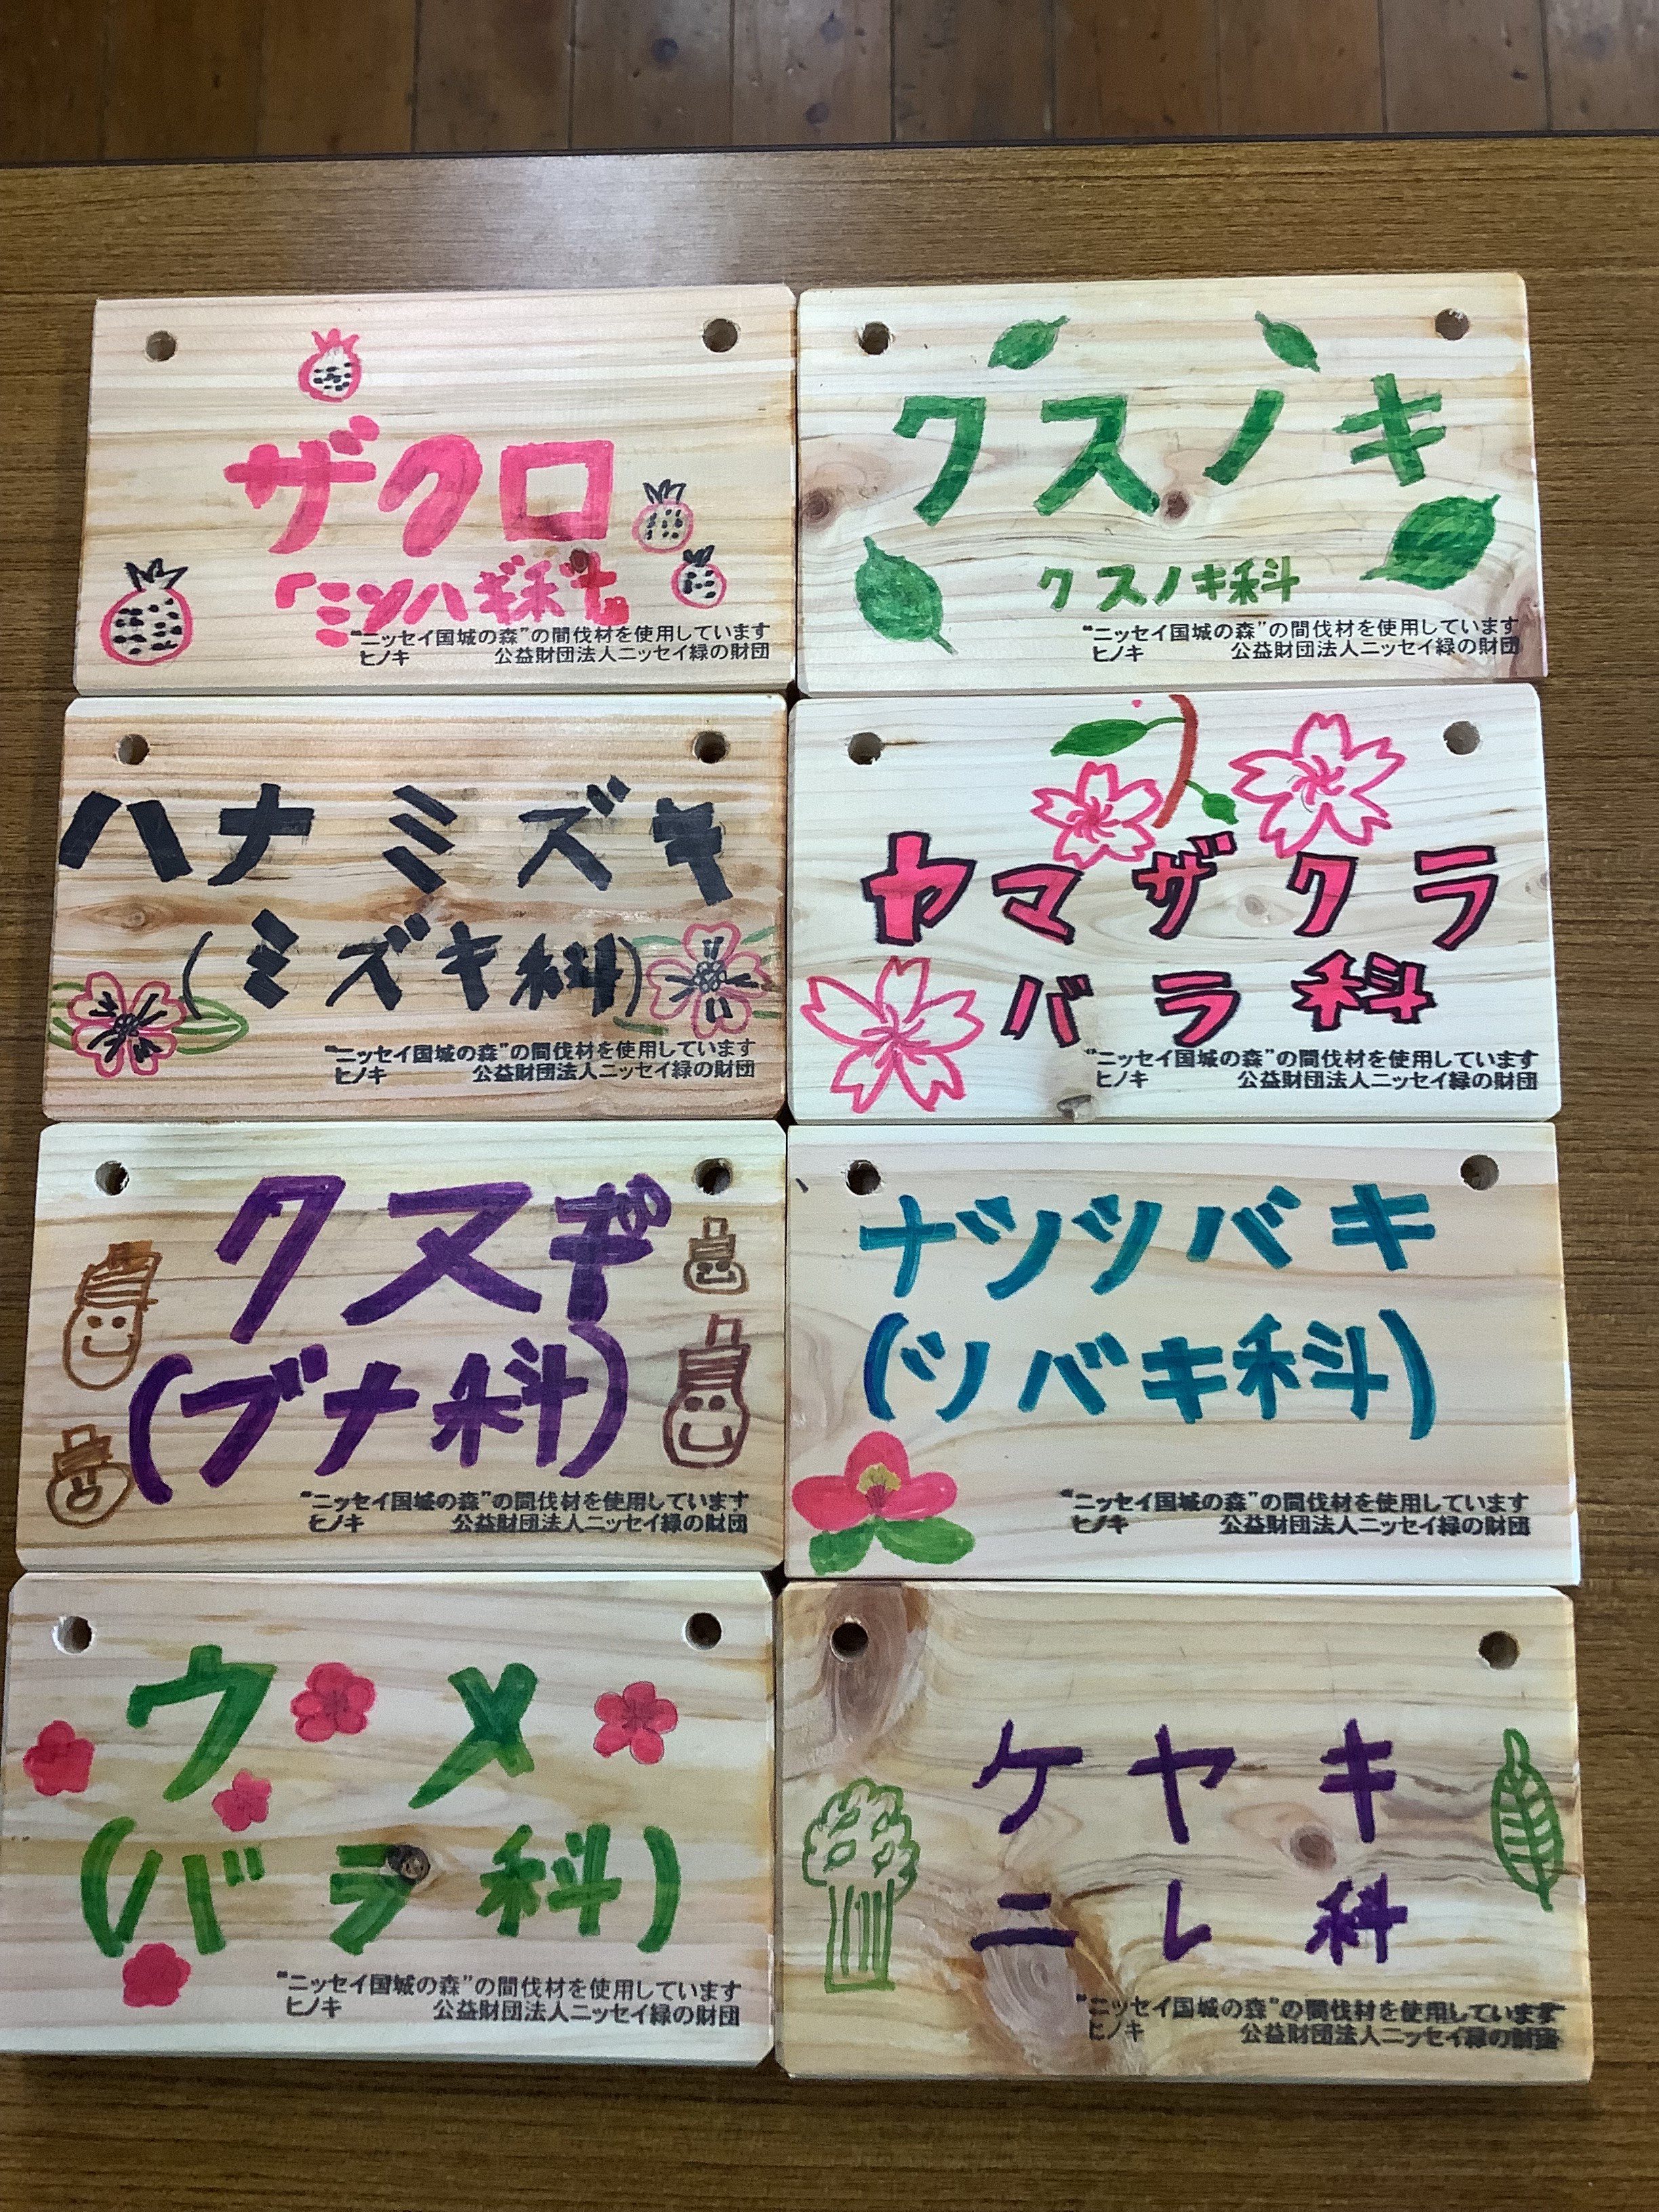 ザクロ
「ミソハギ科」
“ニッセイ国城の森”の間伐材を使用しています
ヒノキ 公益財団法人ニッセイ緑の財団
クスノキ
クスノキ科
“ニッセイ国城の森”の間伐材を使用しています
ヒノキ 公益財団法人ニッセイ緑の財団
ハナミズキ
(ミズキ科)
“ニッセイ国城の森”の間伐材を使用しています
ヒノキ 公益財団法人ニッセイ緑の財団
ヤマザクラ
バラ科
“ニッセイ国城の森”の間伐材を使用しています
ヒノキ 公益財団法人ニッセイ緑の財団
クヌギ
(ブナ科)
“ニッセイ国城の森”の間伐材を使用しています
ヒノキ 公益財団法人ニッセイ緑の財団
ナツツバキ
(ツバキ科)
“ニッセイ国城の森”の間伐材を使用しています
ヒノキ 公益財団法人ニッセイ緑の財団
ウメ
(バラ科)
“ニッセイ国城の森”の間伐材を使用しています
ヒノキ 公益財団法人ニッセイ緑の財団
ケヤキ
ニレ科
“ニッセイ国城の森”の間伐材を使用しています
ヒノキ 公益財団法人ニッセイ緑の財団